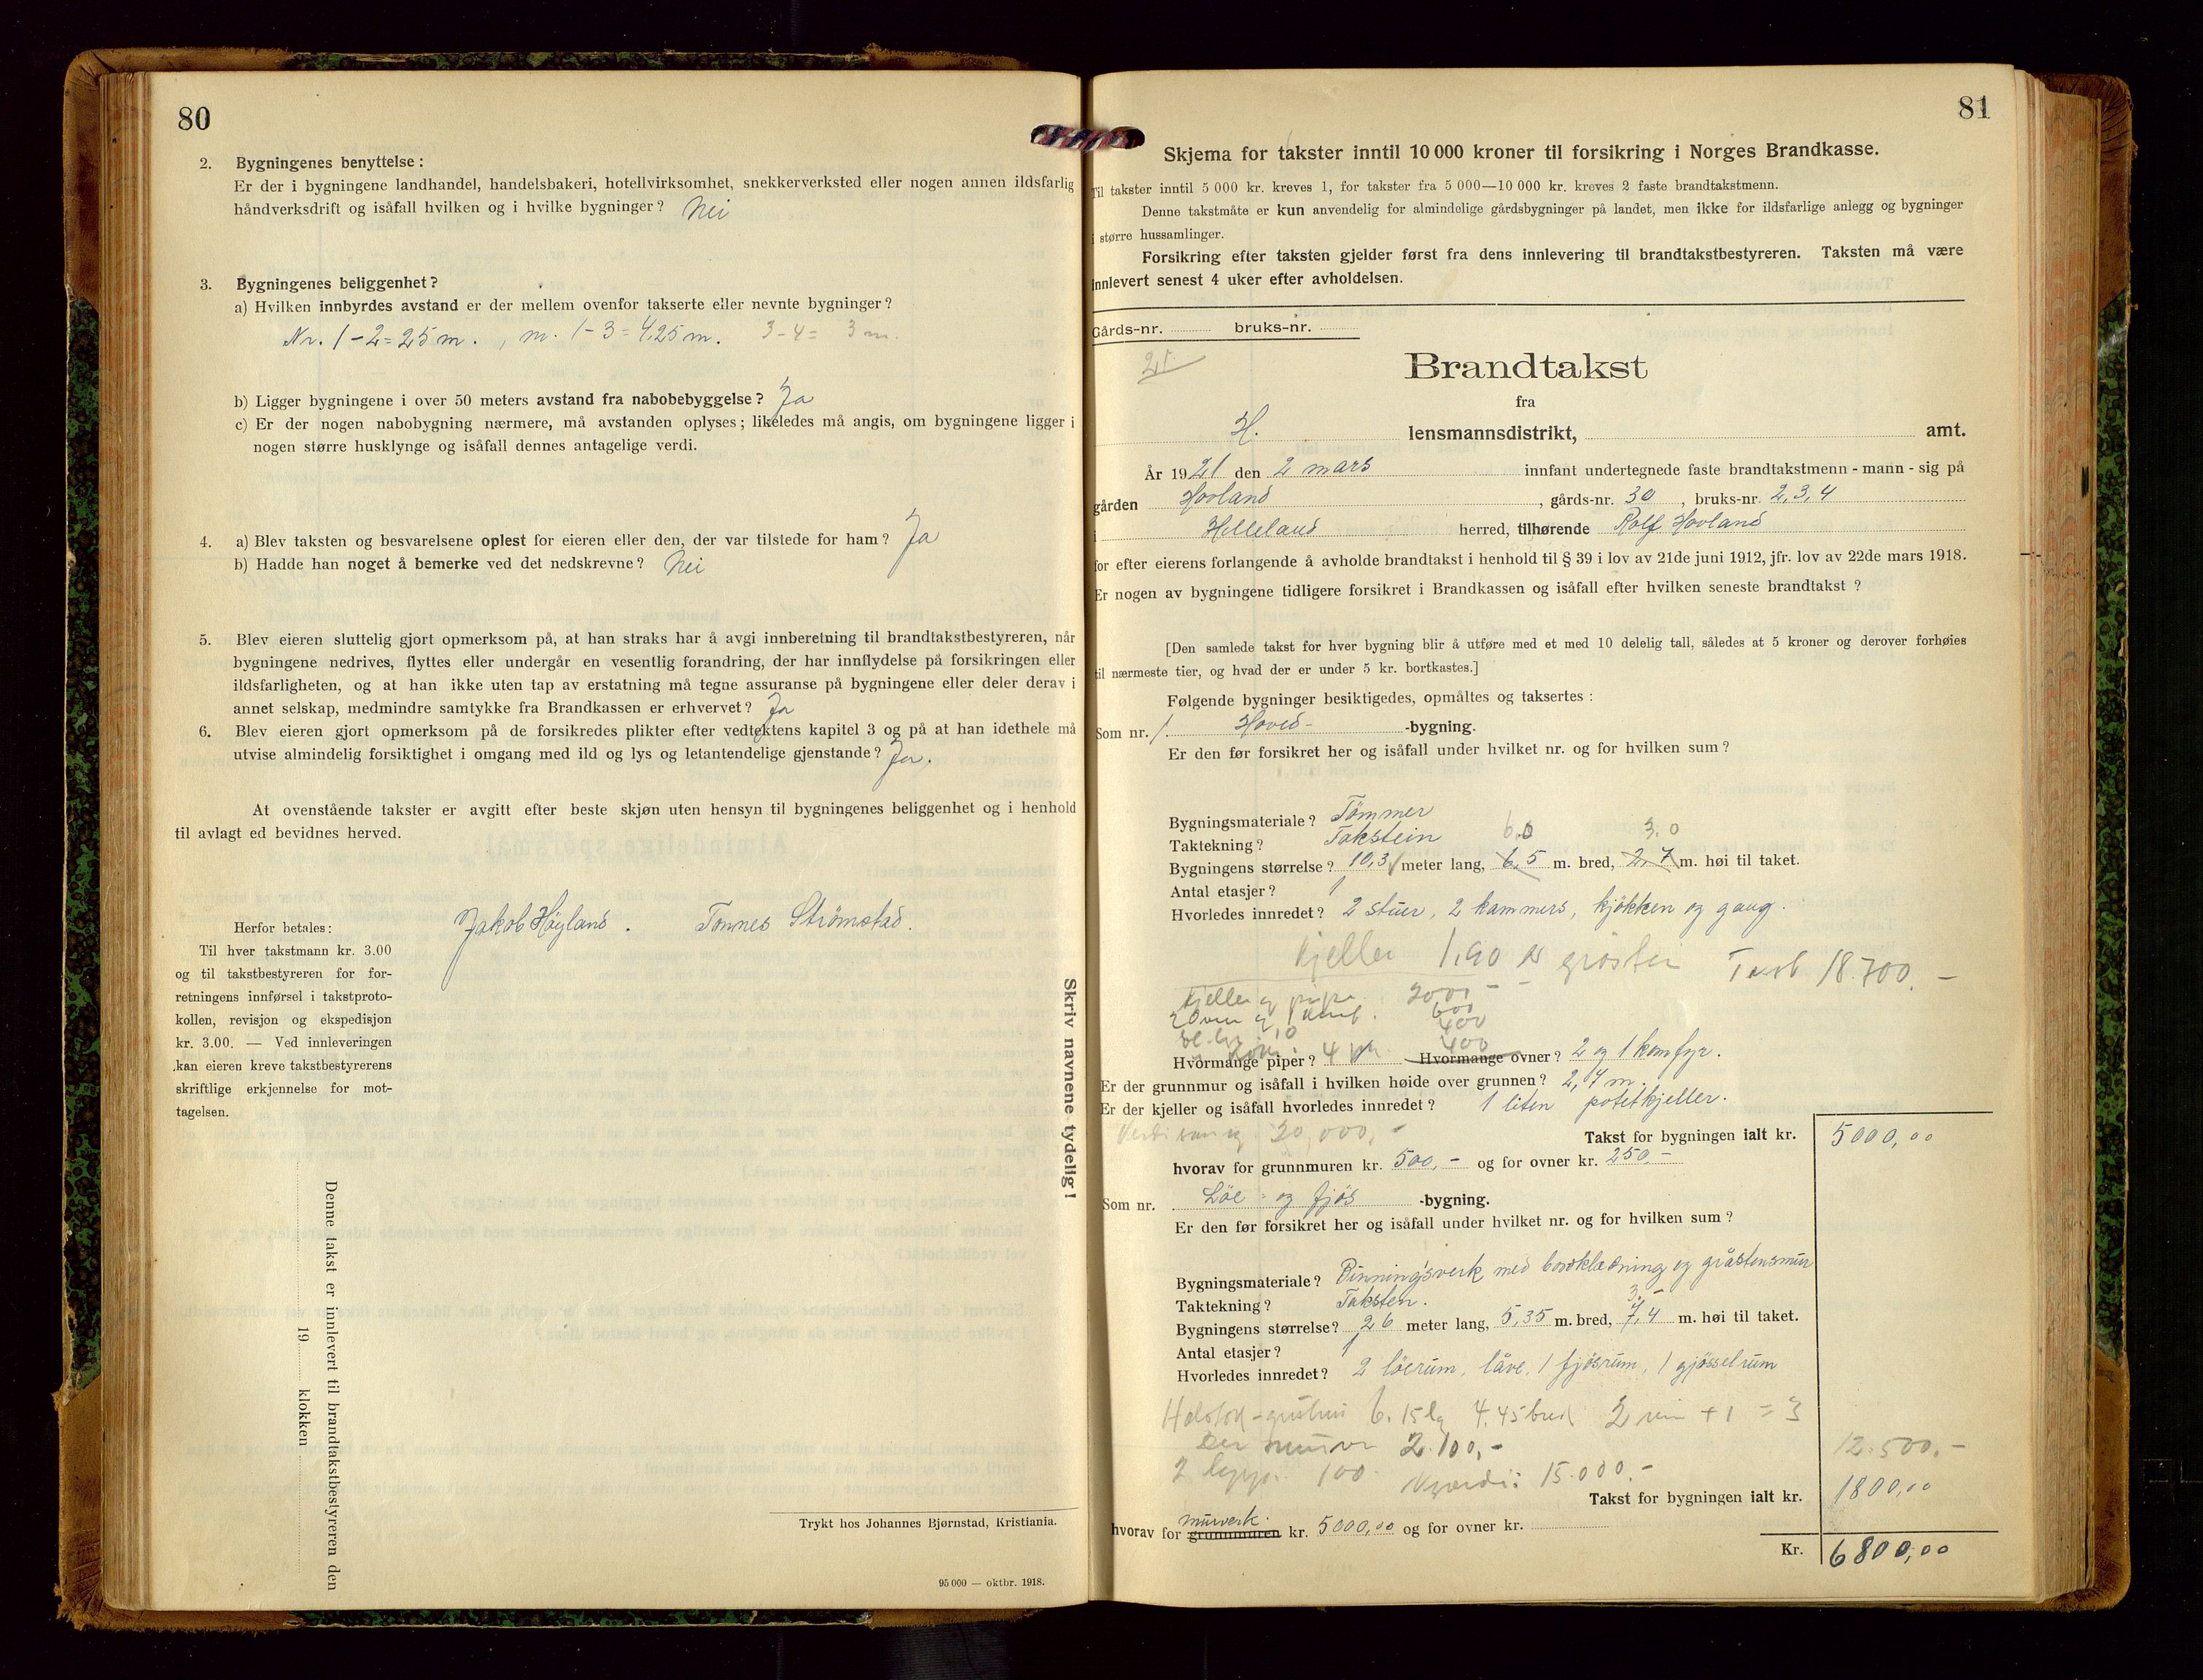 80
2. Bygningenes benyttelse:
Er der i bygningene landhandel, handelsbakeri, hotellvirksomhet, snekkerverksted eller nogen annen ildsfarlig
håndverksdrift og isåfall hvilken og i hvilke bygninger? Nei
3. Bygningenes beliggenhet?
a) Hvilken innbyrdes avstand er der mellem ovenfor takserte eller nevnte bygninger?
Nr. 1-2=25 m., nr. 1-3=4,25 m. 3-4= 3 m.
b) Ligger bygningene i over 50 meters avstand fra nabobebyggelse? Ja
c) Er der nogen nabobygning nærmere, må avstanden oplyses; likeledes må angis, om bygningene ligger i
nogen større husklynge og isåfall dennes antagelige verdi.
4. a) Blev taksten og besvarelsene oplest for eieren eller den, der var tilstede for ham? Ja
b) Hadde han noget å bemerke ved det nedskrevne? Nei
5. Blev eieren sluttelig gjort opmerksom på, at han straks har å avgi innberetning til brandtakstbestyreren, når
bygningene nedrives, flyttes eller undergår en vesentlig forandring, der har innflydelse på forsikringen eller
ildsfarligheten, og at han ikke uten tap av erstatning må tegne assuranse på bygningene eller deler derav i
annet selskap, medmindre samtykke fra Brandkassen er erhvervet? Ja
6. Blev eieren gjort opmerksom på de forsikredes plikter efter vedtektens kapitel 3 og på at han idethele må
utvise almindelig forsiktighet i omgang med ild og lys og letantendelige gjenstande? Ja.
At ovenstående takster er avgitt efter beste skjøn uten hensyn til bygningenes beliggenhet og i henhold
til avlagt ed bevidnes herved.
Jakob Høyland. Tønnes Strömstad.
Herfor betales:
Til hver takstmann kr. 3.00
og til takstbestyreren for for-
retningens innførsel i takstproto-
kollen, revisjon og ekspedisjon
kr. 3.00. — Ved innleveringen
kan eieren kreve takstbestyrerens
skriftlige erkjennelse for mot-
tagelsen.
Skriv navnene tydelig!
Denne takst er innlevert til brandtakstbestyreren den
19 klokken
Trykt hos Johannes Bjørnstad, Kristiania.
95 000 — oktbr. 1918.
81
Skjema for takster inntil 10 000 kroner til forsikring i Norges Brandkasse.
Til takster inntil 5 000 kr. kreves 1, for takster fra 5 000—10 000 kr. kreves 2 faste brandtakstmenn.
Denne takstmåte er kun anvendelig for almindelige gårdsbygninger på landet, men ikke for ildsfarlige anlegg og bygninger
i større hussamlinger.
Forsikring efter taksten gjelder først fra dens innlevering til brandtakstbestyreren. Taksten må være
innlevert senest 4 uker efter avholdelsen.
Gårds-nr. bruks-nr.
21
Brandtakst
fra
H. lensmannsdistrikt, amt.
År 1921 den 2 mars innfant undertegnede faste brandtakstmenn - mann - sig på
gården Hovland, gårds-nr. 30, bruks-nr. 2, 3, 4
i Helleland herred, tilhørende Rolf Hovland
for efter eierens forlangende å avholde brandtakst i henhold til § 39 i lov av 21de juni 1912, jfr. lov av 22de mars 1918.
Er nogen av bygningene tidligere forsikret i Brandkassen og isåfall efter hvilken seneste brandtakst?
[Den samlede takst for hver bygning blir å utføre med et med 10 delelig tall, således at 5 kroner og derover forhøies
til nærmeste tier, og hvad der er under 5 kr. bortkastes.]
Følgende bygninger besiktigedes, opmåltes og taksertes:
Som nr. 1. Hoved- -bygning.
Er den før forsikret her og isåfall under hvilket nr. og for hvilken sum?
Bygningsmateriale? Tömmer
Taktekning? Takstein 6.0 3.0
Bygningens størrelse? 10,3 meter lang, 6,5 m. bred, 2,7 m. høi til taket.
Antal etasjer? 1
Hvorledes innredet? 2 stuer, 2 kammers, kjökken og gang.
Kjeller 1,90 18.700.-
Kjeller og pipe 2000 -
600
400
400
Hvormange piper? Hvormange ovner? 2 og 1 komfyr.
Er der grunnmur og isåfall i hvilken høide over grunnen? 2,4 m.
Er der kjeller og isåfall hvorledes innredet? 1 liten potetkjeller.
20,000,-
Takst for bygningen ialt kr. 5000,00
hvorav for grunnmuren kr. 500,- og for ovner kr. 250,-
Som nr. Löe- og fjös -bygning.
Er den før forsikret her og isåfall under hvilket nr. og for hvilken sum?
Bygningsmateriale? Binningsverk med bordklædning og gråstensmur
Taktekning? Taksten. 3,-
Bygningens størrelse? 26 meter lang, 5,35 m. bred, 7,4 m. høi til taket.
Antal etasjer? 1
Hvorledes innredet? 2 löerum, låve, 1 fjösrum, 1 gjösselrum
6.15 lg 4.45 bred 2 + 1 = 3
2.100,-
12.500,-
100. 15.000.-
Takst for bygningen ialt kr. 1800,00
murverk.
hvorav for grunnmuren kr. 5000,00 og for ovner kr.
Kr. 6800,00